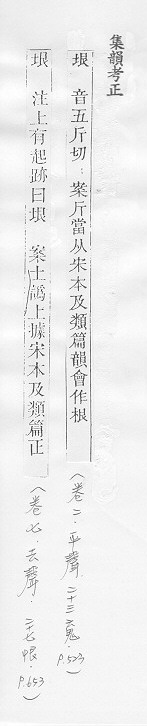 集韻考正
垠 音五斤切：案斤當从宋本及類篇韻會作根
(卷二．平聲．二十三魂．P.523)
垠 注上有起跡曰垠 案土譌上據宋本及類篇正
(卷七．去聲．二十七恨．P.653)